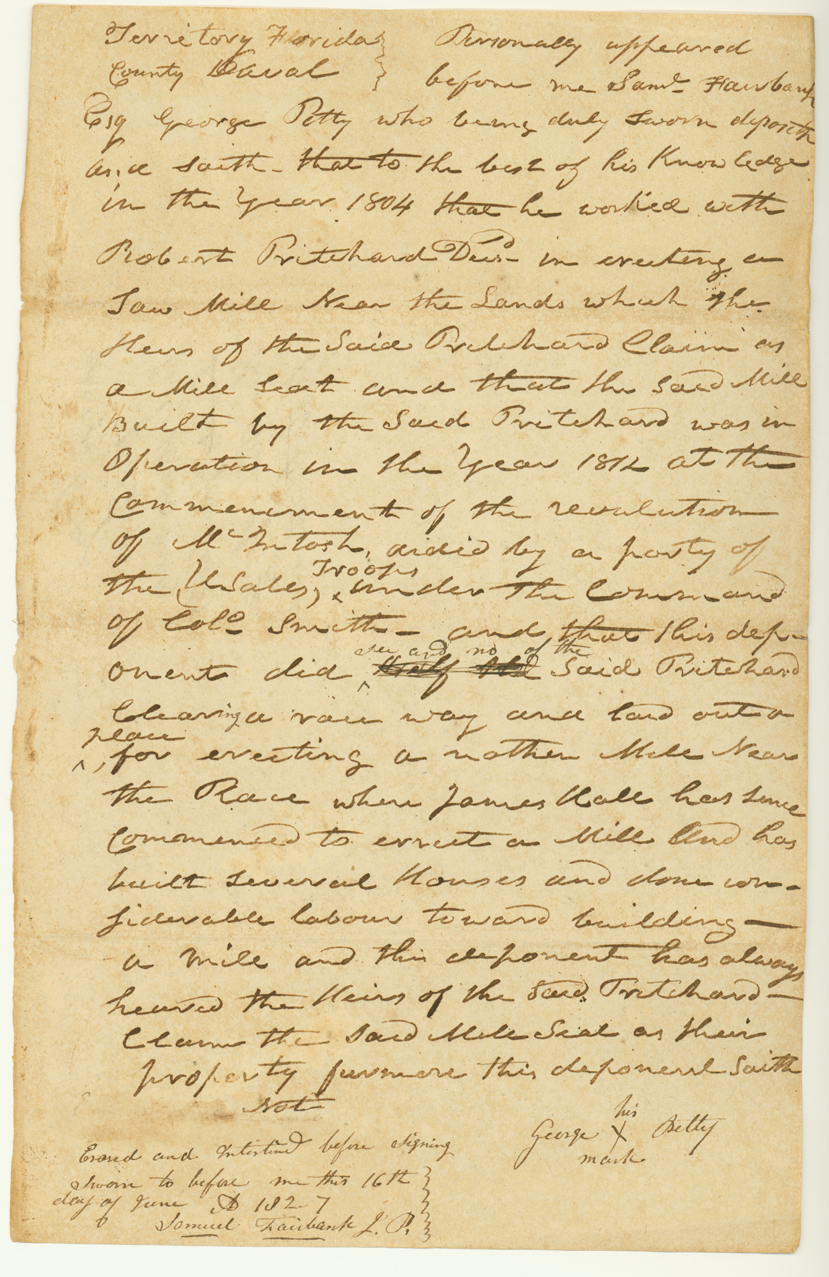 Territory Florida } Personally appeared
County Duval } before me Saml Fairbank
Esq George Petty who being duly sworn deposeth
and saith - that to the best of his Knowledge
in the Year 1804 that he worked with
Robert Pritchard Decd in erecting a
Saw Mill Near the Lands which the
Heirs of the Said Pritchard Claim as
a Mill Seat and that the said Mill
Built by the Said Pritchard was in
Operation in the Year 1812 at the
Commencment of the revolution
of McIntosh, aidid by a party of
the (U States) Troops under the Command
of Colo Smith - and that this dep-
onent did see and no of the Said Pritchard
Clearing a race way and laid out a
place for erecting a nother Mill Near
the Race where James Hall has since
Commenced to errect a Mill And has
built Several Houses and done con-
siderable labour toward building -
a Mill and this deponent has always
heared the Heirs of the said Pritchard -
Claim the said Mill Seat as their
property furmore this deponent Saith
Not
George his X mark Petty
Erased and Interlined before signing
Sworn to before me this 16th
day of June AD 1827
Samuel Fairbank J. P.